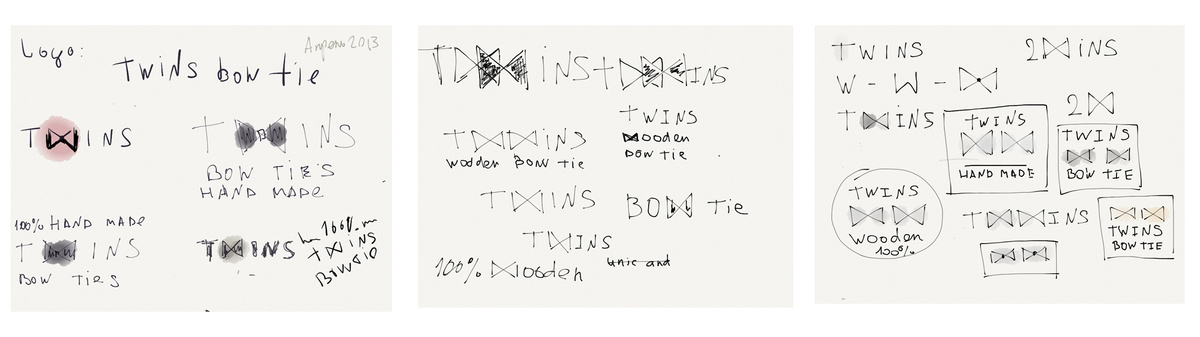 Logo:
TWINS bow tie
TWINS
T WINS
BOW TIE'S
HAND MADE
100% HAND MADE
T WINS
BOW TieS
TWINS
100%
TWINS
BOWTIO
TWINS
TWINS
TWINS
wooden BOW tie
TWINS
wooden
bow tie
TWINS
BOW Tie
TWINS
unic and
100% Wooden
TWINS
2WINS
W - W -
TWINS
TWINS
HAND MADE
2
TWINS
BOW TIE
TWINS
wooden
100%
TWINS
TWINS
BOW TIE